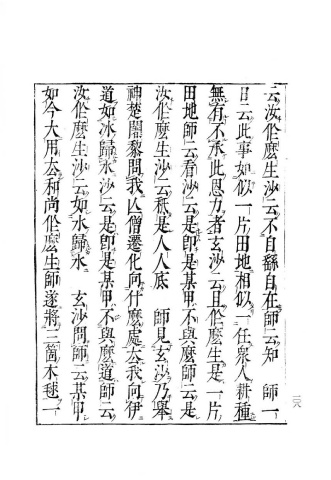 云汝作麼生沙云不自繇自在師云知　師一
日云此事如似一片田地相似一任衆人耕種
無有不承此恩力者玄沙云且作麼生是一片
田地師云看沙云即是某甲不與麼師云是
汝作麼生沙云秪是人人底　師見玄沙乃舉
神楚闍黎問我亾僧遷化向什麼處去我向伊
道如冰歸水沙云是即是某甲不與麼道師云
汝作麼生沙云如水歸水　玄沙問師云某甲
如今大用去和尚作麼生師遂將三箇木毬一
二八